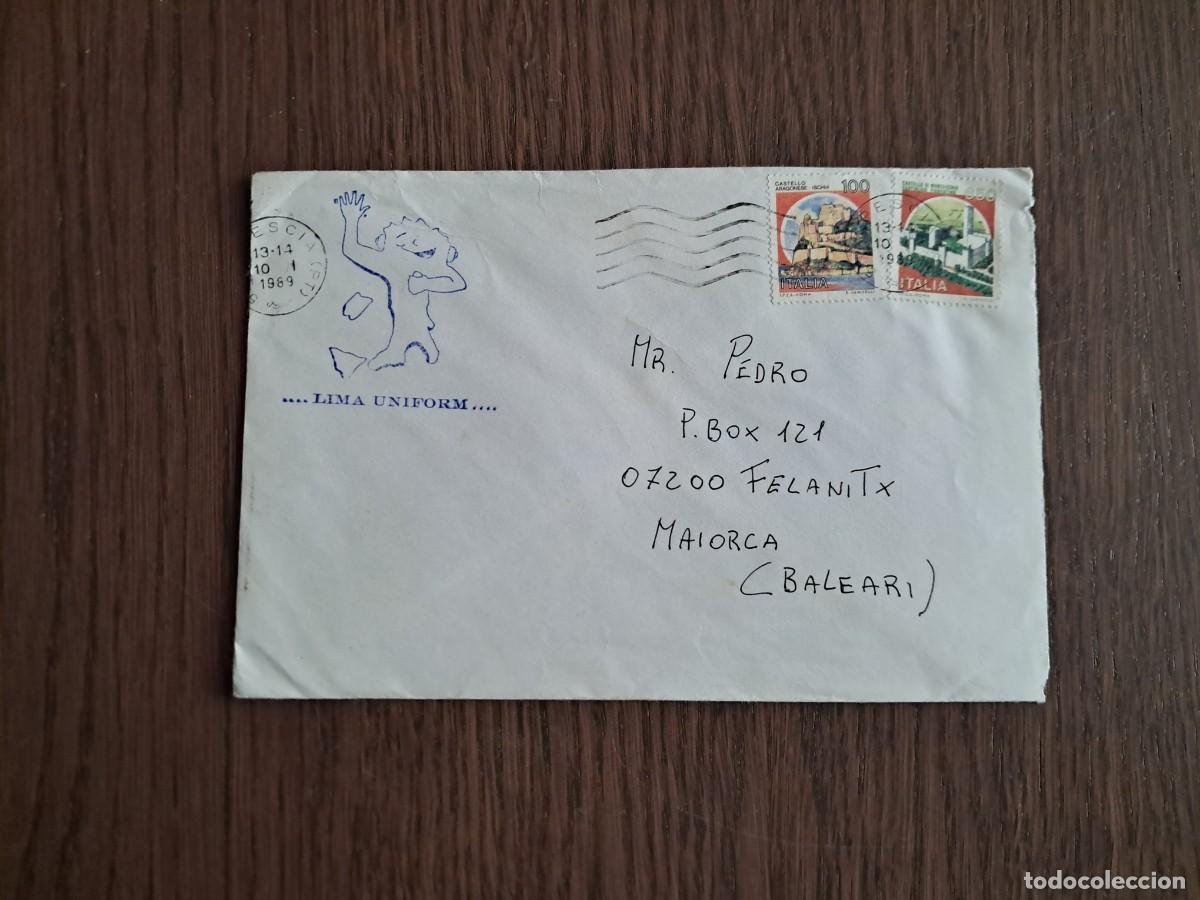 ESCIA (PT)
13-14
10 1
1989
.... LIMA UNIFORM ....
CASTELLO
ARAGONESE ISCHIA 100
ITALIA
ESCIA
13-14
10
1989
ITALIA
MR. PEDRO
P. BOX 121
07200 FELANITX
MAIORCA
(BALEARI)
todocoleccion